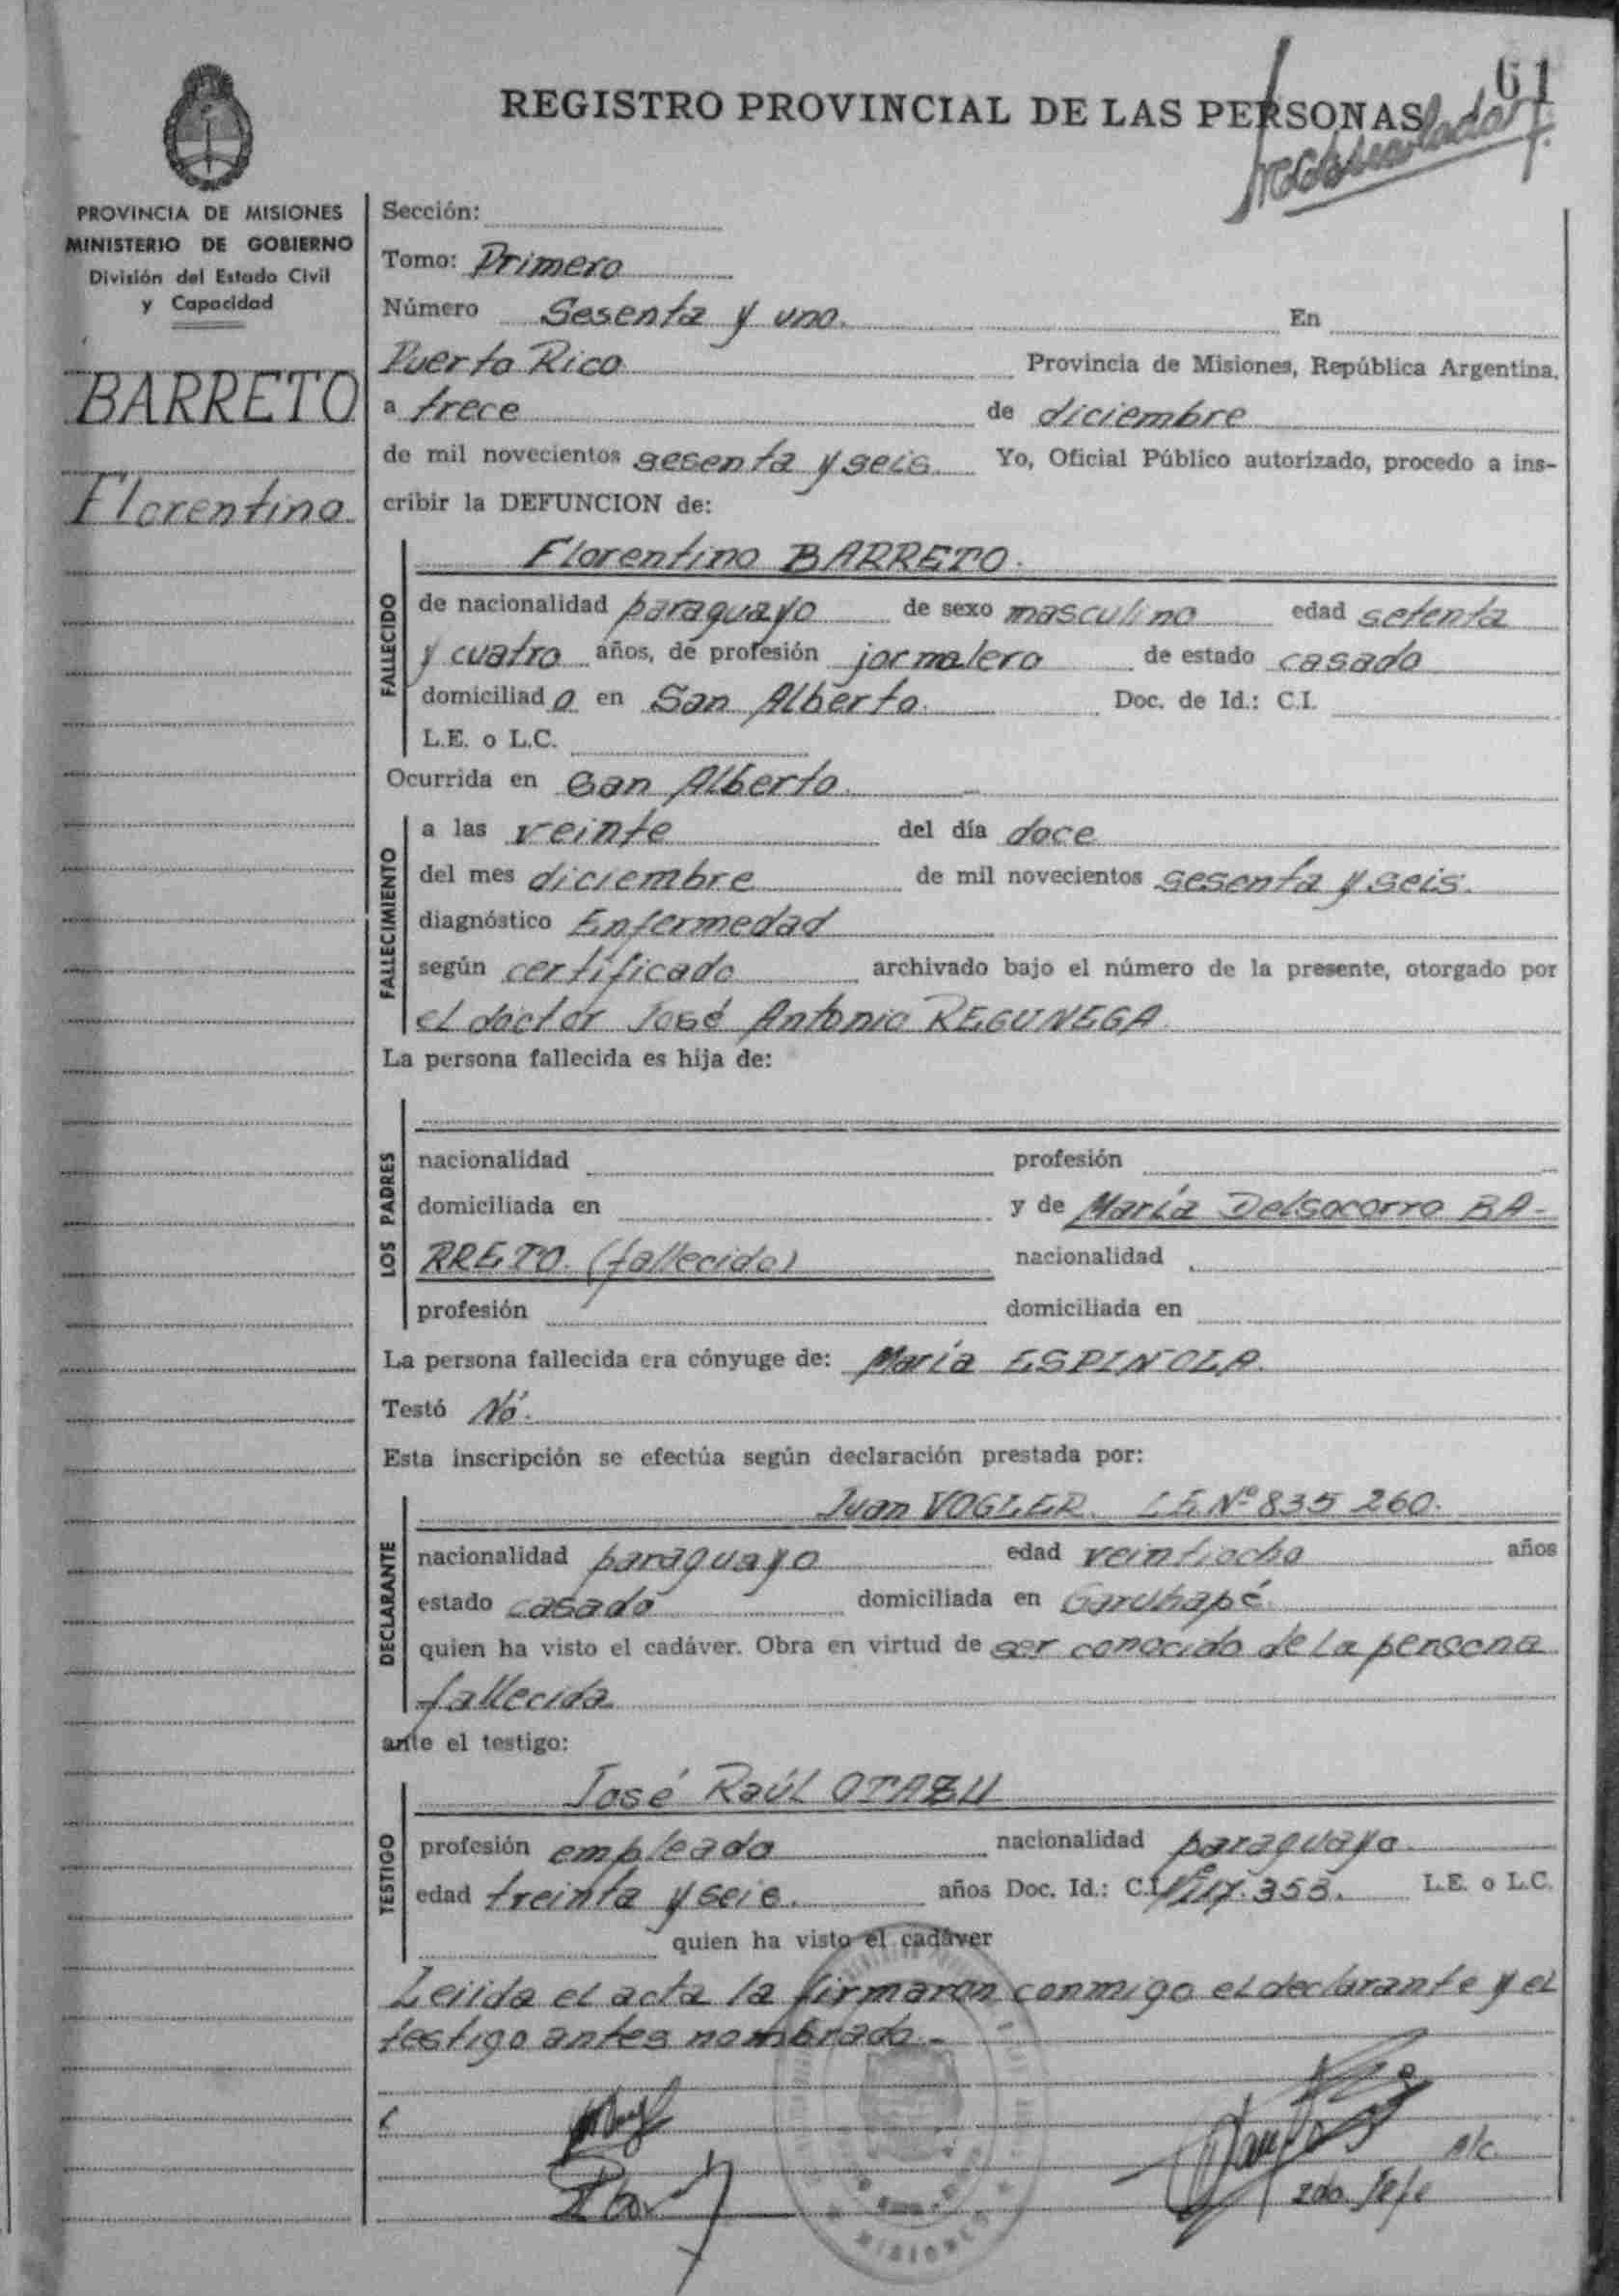 61
REGISTRO PROVINCIAL DE LAS PERSONAS
PROVINCIA DE MISIONES
MINISTERIO DE GOBIERNO
División del Estado Civil
y Capacidad
BARRETO
Florentino
Sección:
Tomo: Primero
Número Sesenta y uno. En
Puerto Rico Provincia de Misiones, República Argentina,
a trece de diciembre
de mil novecientos sesenta y seis Yo, Oficial Público autorizado, procedo a ins-
cribir la DEFUNCION de:
Florentino BARRETO.
FALLECIDO
de nacionalidad paraguayo de sexo masculino edad setenta
y cuatro años, de profesión jornalero de estado casado
domiciliado en San Alberto. Doc. de Id.: C.I.
L.E. o L.C.
Ocurrida en San Alberto.
FALLECIMIENTO
a las veinte del día doce
del mes diciembre de mil novecientos sesenta y seis.
diagnóstico Enfermedad
según certificado archivado bajo el número de la presente, otorgado por
el doctor José Antonio REGUNEGA
La persona fallecida es hija de:
LOS PADRES
nacionalidad profesión
domiciliada en y de María Delsocorro BA-
RRETO. (fallecido) nacionalidad
profesión domiciliada en
La persona fallecida era cónyuge de: María ESPINOLA.
Testó Nó.
Esta inscripción se efectúa según declaración prestada por:
DECLARANTE
Juan VOGLER. L.E.Nº 835 260.
nacionalidad paraguayo edad veintiocho años
estado casado domiciliada en Garuhapé.
quien ha visto el cadáver. Obra en virtud de ser conocido de la persona
fallecida
ante el testigo:
TESTIGO
José Raúl OTAZU
profesión empleado nacionalidad paraguayo.
edad treinta y seis. años Doc. Id.: C.I. Nº 117.353. L.E. o L.C.
quien ha visto el cadáver
Leiida el acta la firmaron conmigo el declarante y el
testigo antes nombrado.-
A/c.
2do. Jefe
MISIONES